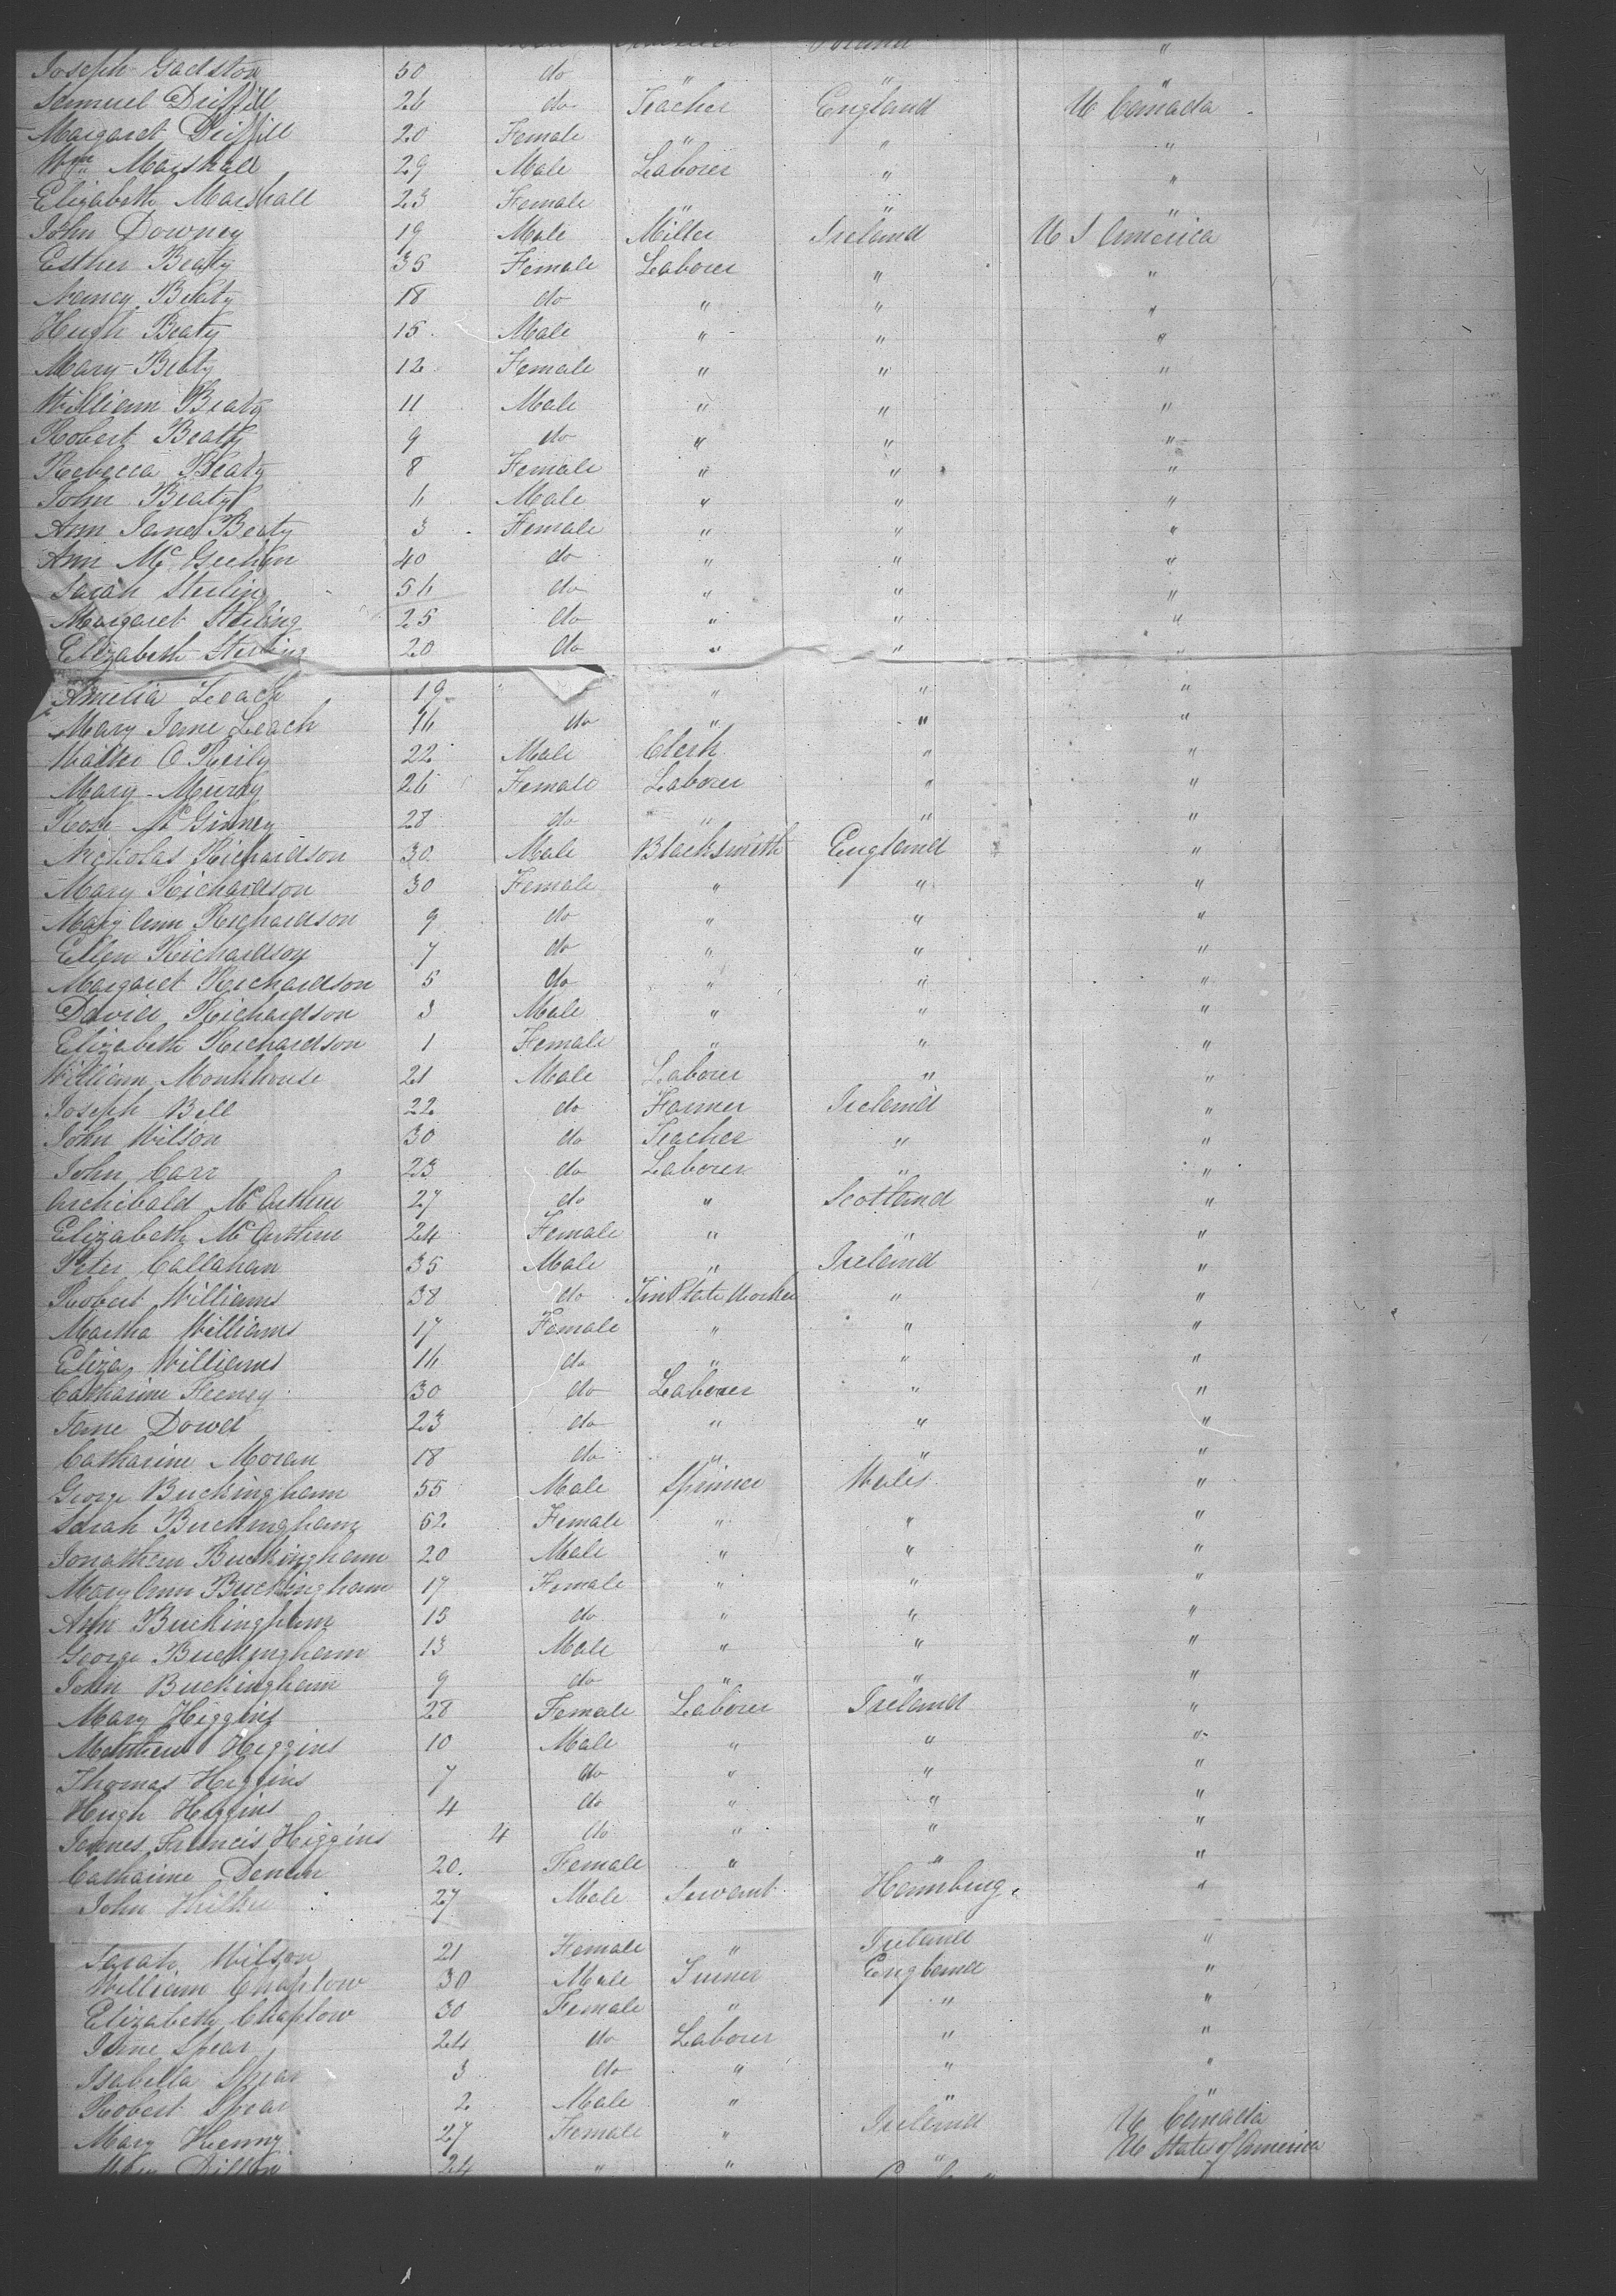 Joseph Gadston 50 do " " "
Samuel Driffill 26 do Teacher England U Canada
Margaret Driffill 20 Female " " "
Wm Marshall 29 Male Laborer " "
Elizabeth Marshall 23 Female " " "
John Downey 19 Male Miller Ireland U S America
Esther Beaty 35 Female Laborer " "
Nancy Beaty 18 do " " "
Hugh Beaty 15 Male " " "
Mary Beaty 12 Female " " "
William Beaty 11 Male " " "
Robert Beaty 9 do " " "
Rebecca Beaty 8 Female " " "
John Beaty 6 Male " " "
Ann Jane Beaty 3 Female " " "
Ann Mc 40 do " " "
Sarah Sterling 56 do " " "
Margaret Sterling 25 do " " "
Elizabeth Sterling 20 do " " "
Amelia Leach 19 " " "
Mary Jane Leach 16 do " " "
Walter O Reily 22 Male Clerk " "
Mary Murry 26 Female Laborer " "
Rose Mc Ginney 28 do " " "
Nickolas Richardson 30 Male Blacksmith England "
Mary Richardson 30 Female " " "
Mary Ann Richardson 9 do " " "
Ellen Richardson 7 do " " "
Margaret Richardson 5 do " " "
David Richardson 3 Male " " "
Elizabeth Richardson 1 Female " " "
William Monkhouse 21 Male Laborer " "
Joseph Bell 22 do Farmer Ireland "
John Wilson 30 do Teacher " "
John Carr 23 do Laborer " "
Archibald McArthur 27 do " Scotland "
Elizabeth McArthur 24 Female " " "
Peter Callahan 35 Male " Ireland "
Robert Williams 38 do Tin Plate Worker " "
Martha Williams 17 Female " " "
Eliza Williams 16 do " " "
Catharine Feeney 30 do Laborer " "
Jane Dowd 23 do " " "
Catharine Moran 18 do " " "
George Buckingham 55 Male Spinner Wales "
Sarah Buckingham 52 Female " " "
Jonathan Buckingham 20 Male " " "
Mary Ann Buckingham 17 Female " " "
Ann Buckingham 15 do " " "
George Buckingham 13 Male " " "
John Buckingham 9 do " " "
Mary Higgins 28 Female Laborer Ireland "
Matthew Higgins 10 Male " " "
Thomas Higgins 7 do " " "
Hugh Higgins 4 do " " "
James Francis Higgins 4 do " " "
Catharine 20 Female " " "
John 27 Male Servant Hamburg "
Sarah Wilson 21 Female " Ireland "
William Chaplow 30 Male Turner England "
Elizabeth Chaplow 30 Female " " "
Jane Spear 24 do Laborer " "
Isabella Spear 3 do " " "
Robert Spear 2 Male " " "
Mary Henny 27 Female " Ireland U Canada
Mary Dillon 24 " " " U States of America